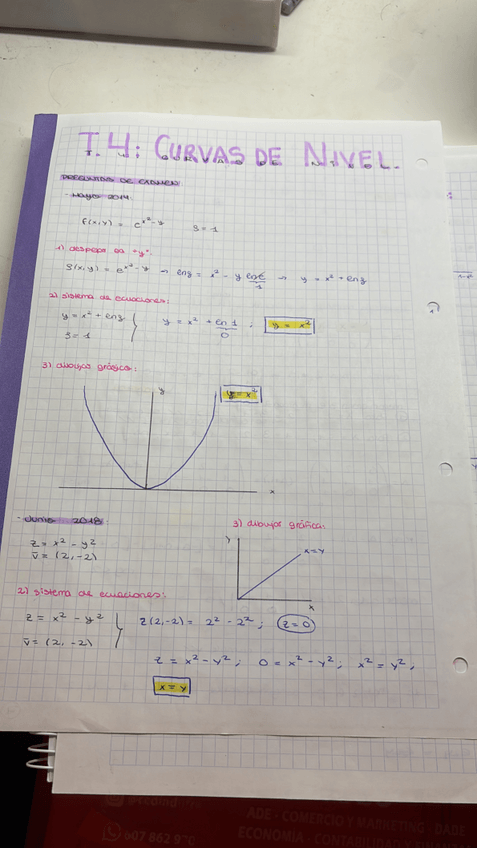 T.4: CURVAS DE NIVEL.
PREGUNTAS DE EXAMEN:
- MAYO 2014
f(x,y) = e^x²-y    z = 1
1) despejar la "y":
z(x,y) = e^x²-y → ln z = x² - y ln e → y = x² + ln z
1
2) sistema de ecuaciones:
y = x² + ln z } y = x² + ln 1 ; y = x²
z = 1    0
3) dibujos gráficos:
y
y = x²
x
- JUNIO 2018:
z = x² - y²
v̄ = (2, -2)
3) dibujos gráfica:
y
x=y
x
2) sistema de ecuaciones:
z = x² - y² } z(2,-2) = 2² - 2² ; z=0
v̄ = (2, -2)
z = x² - y² ; 0 = x² - y² ; x² = y² ,
x = y
607 862 9
ADE - COMERCIO Y MARKETING - DADE
ECONOMÍA - CONTABILIDAD